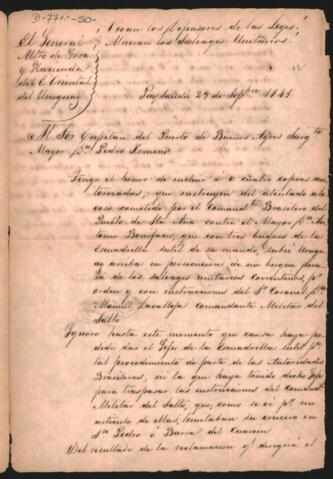 D-771.-50-
¡Vivan los Defensores de las Leyes!
¡Mueran los Salvages Unitarios!
El General
Mtro de Gova
y Hacienda
del E. Oriental
del Uruguay
Paysandú 29 de Sepbre 1845
Al Sor Capitan del Puerto de Buenos Ayres Sargto
Mayor Dn Pedro Romero
Tengo el honor de incluir a V cuatro copias au-
torizadas, que instruyen del atentado ale-
voso cometido por el Comandte Brasilero del
Pueblo de Sta Ana contra el Mayor Dn An-
tonio Bonifacio, que con tres buques de la
Escuadrilla sutil de su mando, subió Urugu-
ay arriba en persecucion de
de los salvages unitarios correntinos, pr
orden y con instrucciones del Sr Coronel Dn
Manuel Lavalleja comandante Militar del
Salto
Ignoro hasta este momento que causa haya po-
dido dar el Gefe de la Escuadrilla sutil pa
tal procedimiento de parte de las Autoridades
Brasileras, ni la que haya tenido dicho Gefe
para traspasar las instrucciones del Comandte
Militar del Salto, que, como se vé pr un
articulo de ellas, limitaban su crucero en
Sn Pedro ó Barra del Cuarein
Del resultado de la reclamacion qe dirigirá el